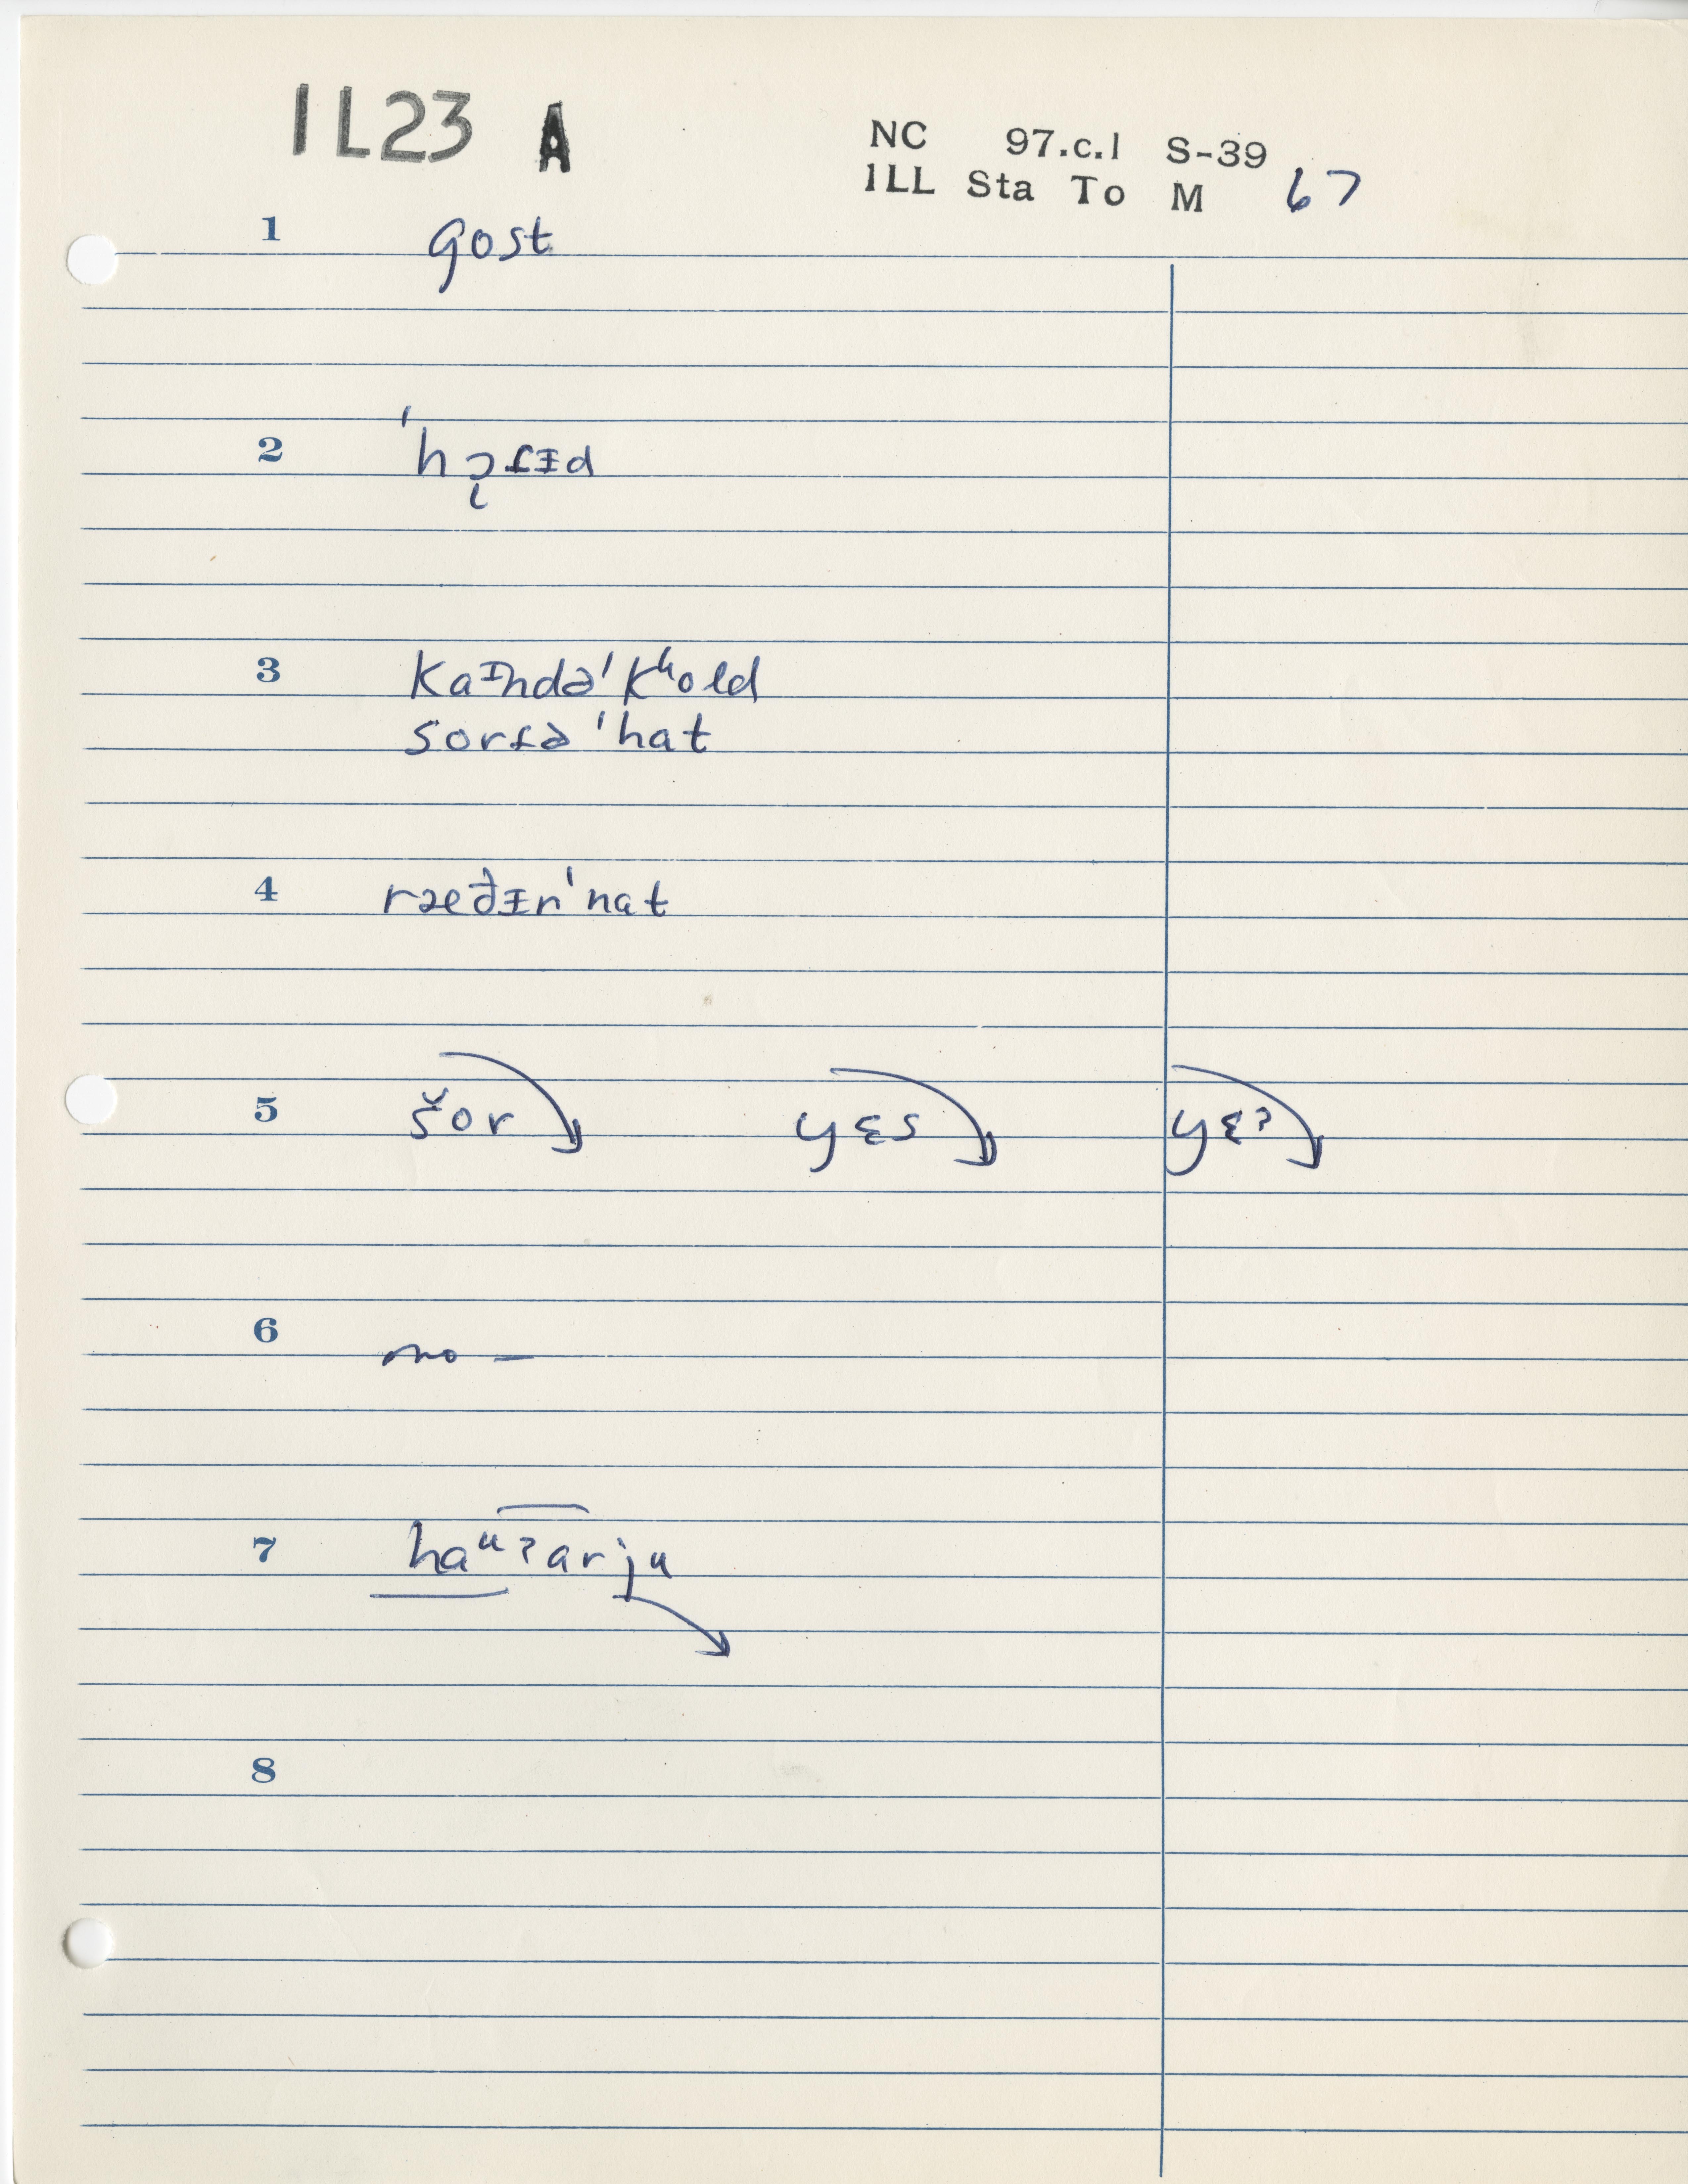 1L23 A
NC 97.c.1 S-39
ILL Sta To M 67
1 gost
2 'hɔ̨fɪd
3 kaɪndə'kʰold
sorfə'hat
4 ræðɪr'nat
5 šor yɛs yɛʔ
6 no —
7 haᵘʔarju
8